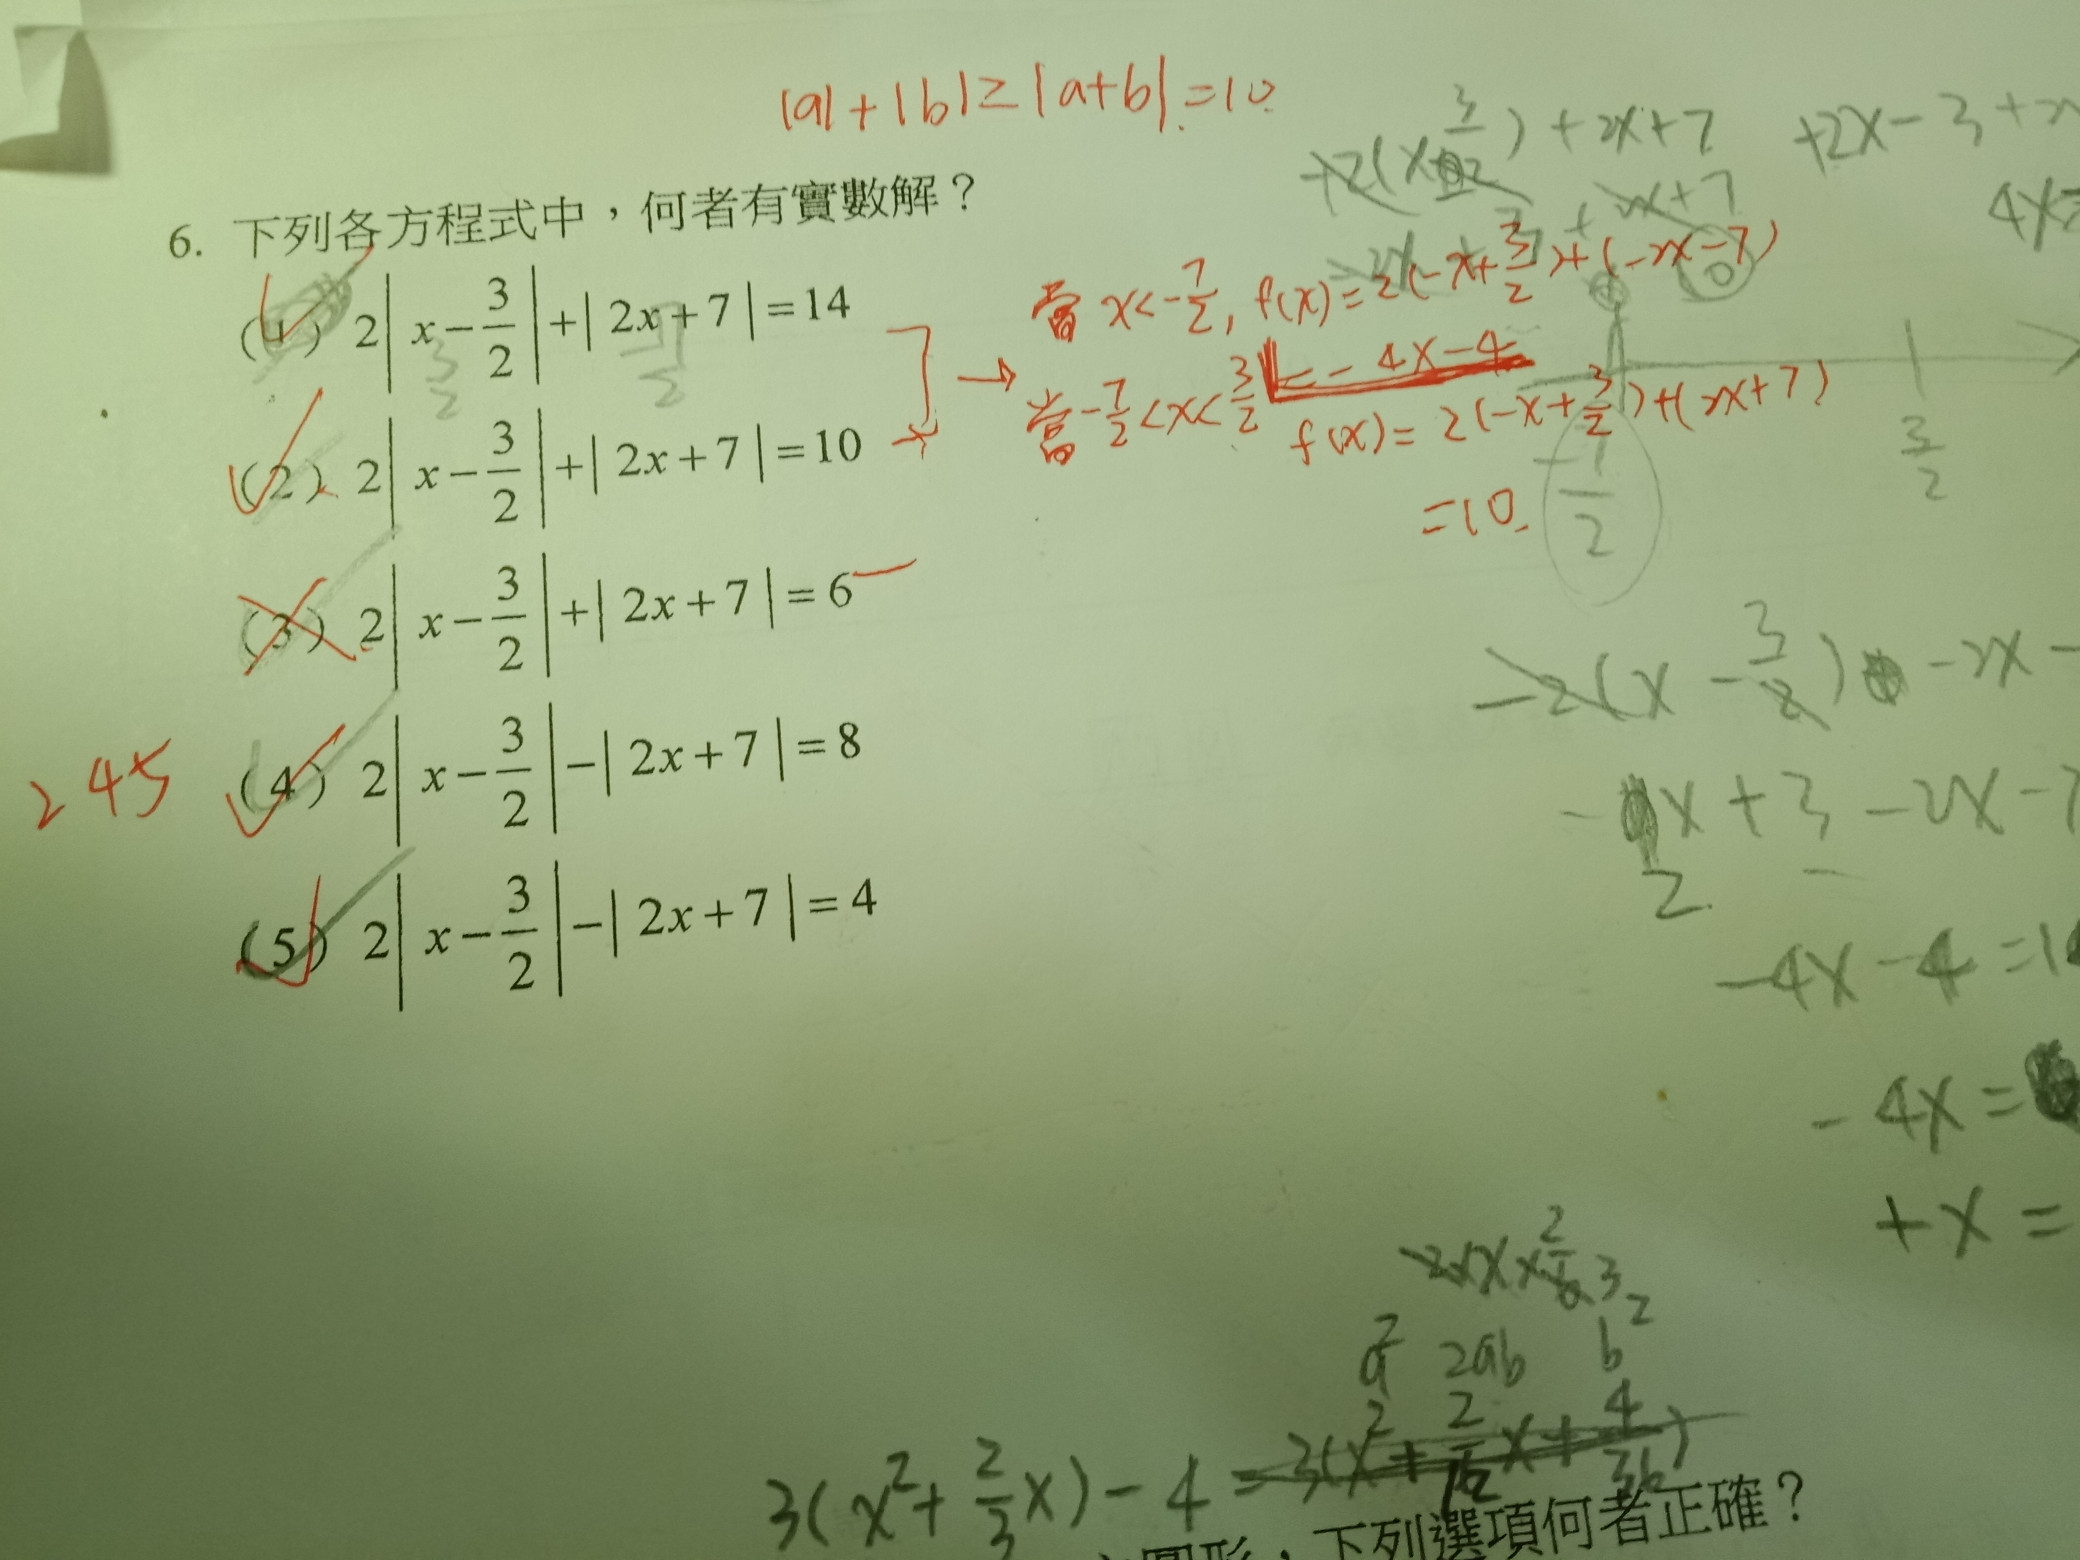 |a|+|b|≥|a+b|=10
6. 下列各方程式中，何者有實數解？
(1) 2|x-3/2|+|2x+7|=14
(2) 2|x-3/2|+|2x+7|=10
(3) 2|x-3/2|+|2x+7|=6
(4) 2|x-3/2|-|2x+7|=8
(5) 2|x-3/2|-|2x+7|=4
245
3/2
7/2
+2x-3+2x
+2x+7
當 x<-7/2, f(x)=2(-x+3/2)+(-2x-7)
=-4x-4
當 -7/2<x<3/2 f(x)=2(-x+3/2)+(2x+7)
=10
-7/2
3/2
-2(x-3/2) -2x-
x+3-2x-7
2
-4x-4=1
-4x=
+x=
a² 2ab b²
3(x²+2/3x)-4=3(x²+
下列選項何者正確？